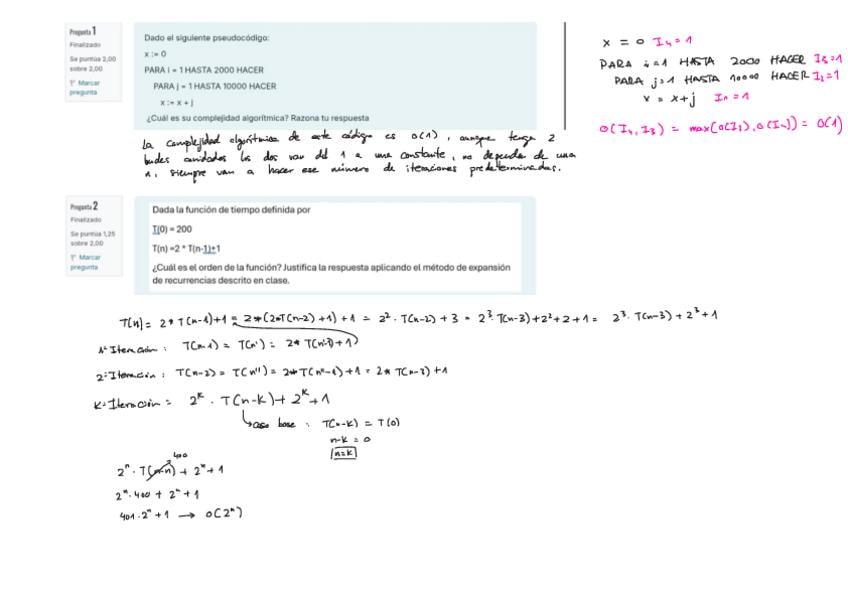 Pregunta 1
Finalizado
Se puntúa 2,00
sobre 2,00
Marcar
pregunta
Dado el siguiente pseudocódigo:
x := 0
PARA i = 1 HASTA 2000 HACER
PARA j = 1 HASTA 10000 HACER
x := x + j
¿Cuál es su complejidad algorítmica? Razona tu respuesta
x = 0 I4 = 1
PARA i=1 HASTA 2000 HACER I3=1
PARA j=1 HASTA 10000 HACER I2=1
x = x+j I1 = 1
O(I4, I3) = max(O(I3), O(I4)) = O(1)
La complejidad algorítmica de este código es O(1), aunque tenga 2
bucles anidados los dos van del 1 a una constante, no depende de una
n, siempre van a hacer ese número de iteraciones predeterminadas.
Pregunta 2
Finalizado
Se puntúa 1,25
sobre 2,00
Marcar
pregunta
Dada la función de tiempo definida por
T(0) = 200
T(n) =2 * T(n-1)+1
¿Cuál es el orden de la función? Justifica la respuesta aplicando el método de expansión
de recurrencias descrito en clase.
T(n) = 2* T(n-1)+1 = 2*(2*T(n-2)+1)+1 = 2²· T(n-2)+3 = 2³· T(n-3)+2²+2+1 = 2³· T(n-3)+2³+1
1ª Iteración: T(n-1) = T(n') = 2* T(n'-1)+1)
2ª Iteración: T(n-2) = T(n'') = 2* T(n''-1)+1 = 2* T(n-3)+1
K-Iteración = 2^k · T(n-k)+2^k+1
caso base: T(n-k) = T(0)
n-k = 0
n=k
400
2^n · T(n-n) + 2^n + 1
2^n · 400 + 2^n + 1
401 · 2^n + 1 → O(2^n)